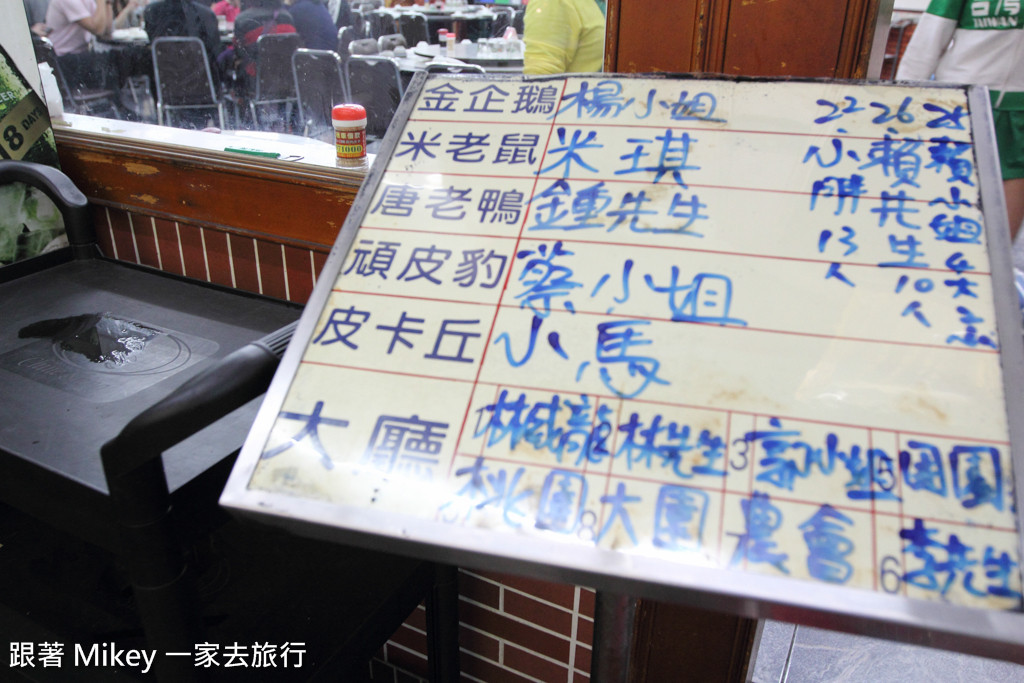 金企鵝 楊小姐 22 26 28
米老鼠 米琪 小胖13人 賴先生10人 賴小姐
唐老鴨 鍾先生
頑皮豹 蔡小姐
皮卡丘 小馬
大廳 2 林先生 3 郭小姐 5
桃園 8 大園 農會 6 李先生
8 DAY
TAIWAN
跟著 Mikey 一家去旅行